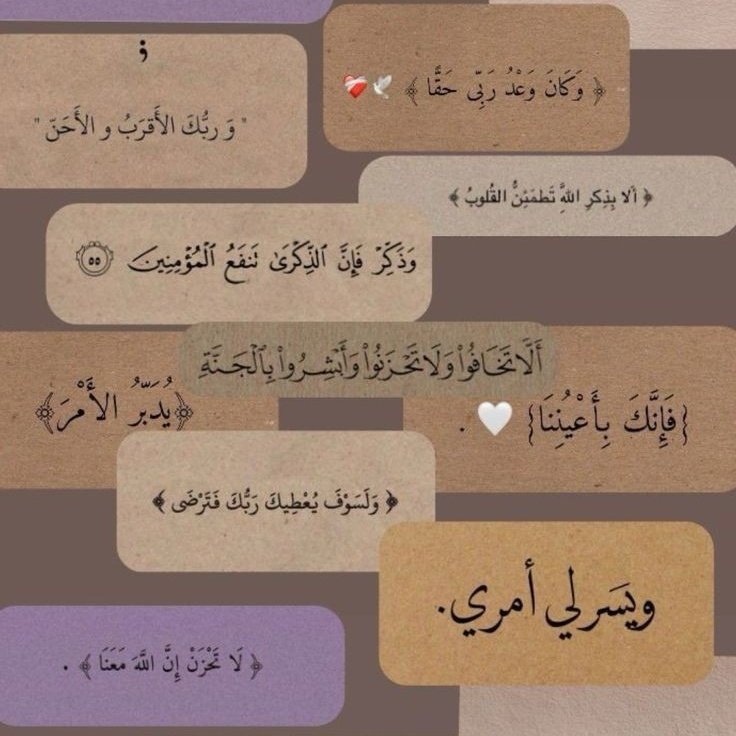 ﴿ وَكَانَ وَعْدُ رَبِّى حَقًّا ﴾ 🕊️❤️‍🩹
؛
" وَ ربُّكَ الأَقرَبُ و الأَحَنّ "
﴿ ألا بِذِكرِ اللهَِّ تَطمَئِنُّ القُلوبُ ﴾
وَذَكِّرْ فَإِنَّ ٱلذِّكْرَىٰ تَنفَعُ ٱلْمُؤْمِنِينَ ٥٥
أَلَّا تَخَافُوا۟ وَلَا تَحْزَنُوا۟ وَأَبْشِرُوا۟ بِٱلْجَنَّةِ
﴿يُدَبِّرُ الأَمْرَ﴾
{فَإِنَّكَ بِأَعْيُنِنَا} 🤍 .
﴿ وَلَسَوْفَ يُعْطِيكَ رَبُّكَ فَتَرْضَى ﴾
ويسَر لي أمري.
﴿ لَا تَحْزَنْ إِنَّ اللَّهَ مَعَنَا ﴾ .